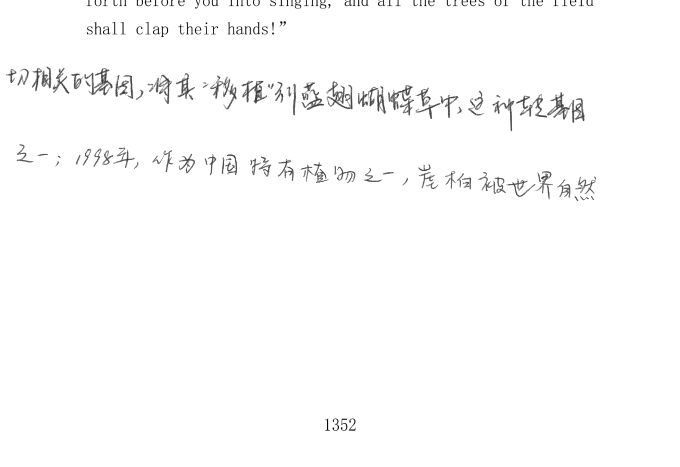 forth before you into singing, and all the trees of the field
shall clap their hands!”
切相关的基因,将其“移植”到蓝翅蝴蝶草中,这种转基因
之一;1998年,作为中国特有植物之一,崖柏被世界自然
1352